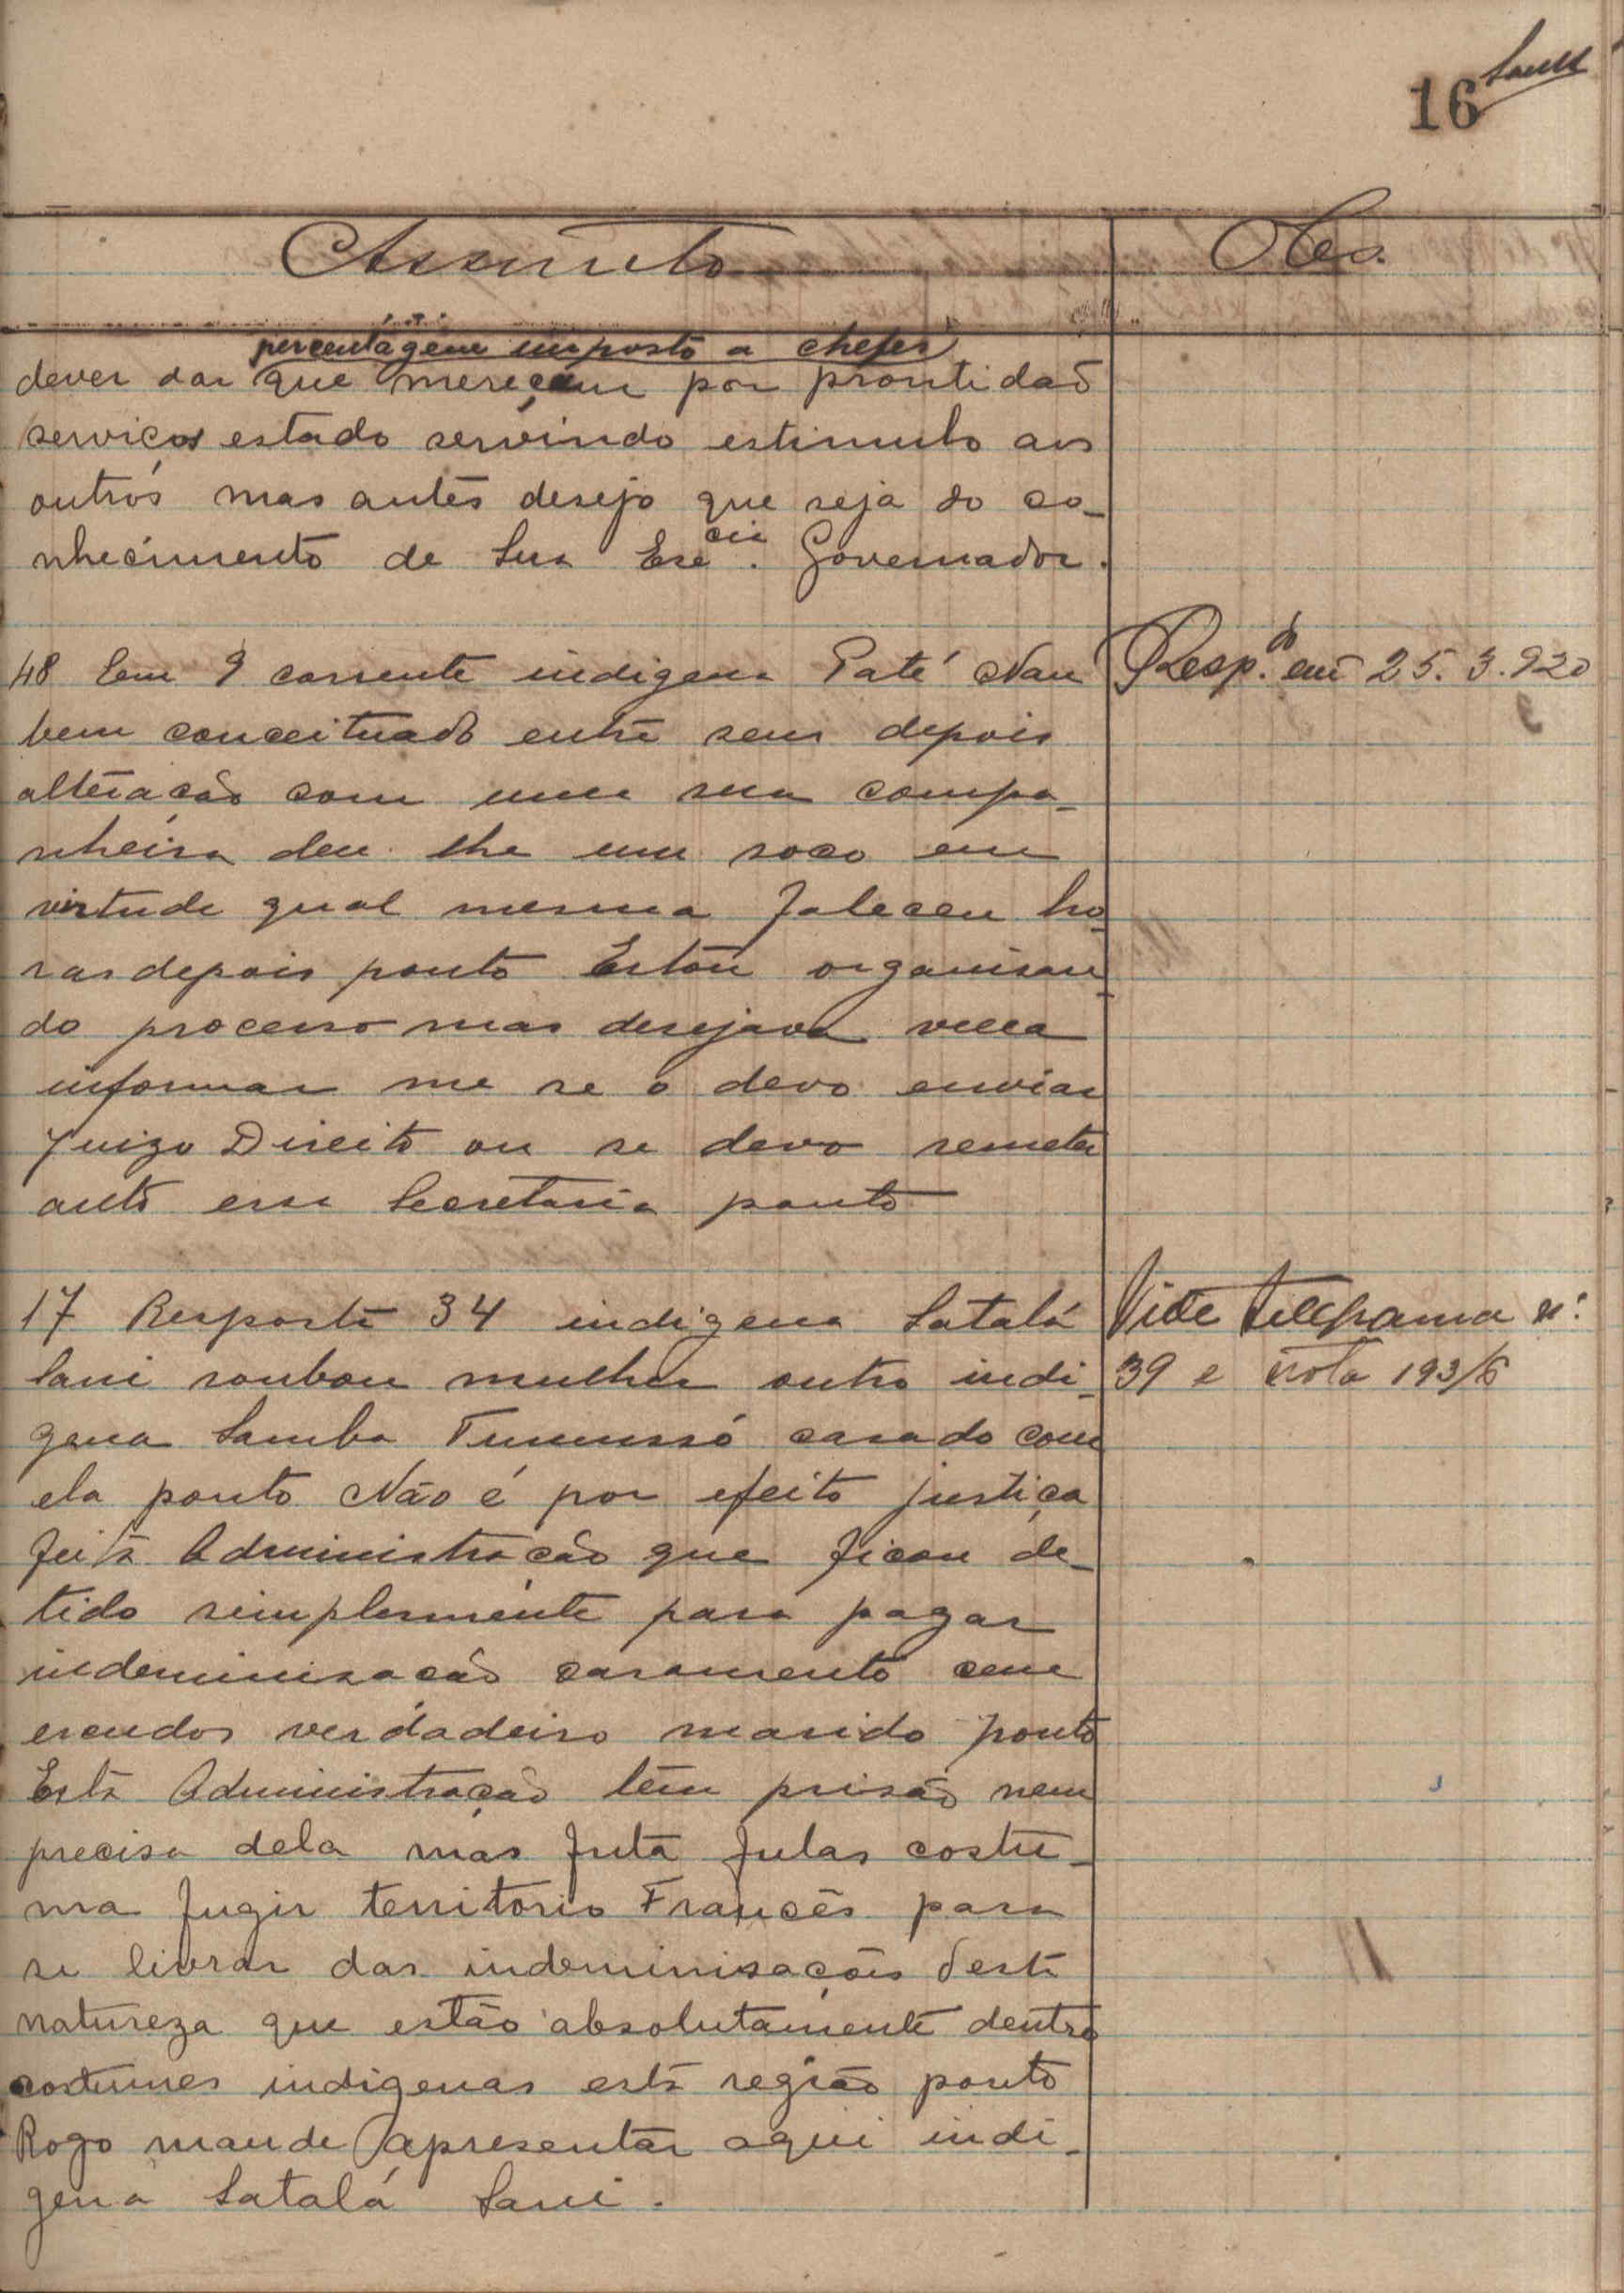 16
Assunto
Obs.
percentágem imposto a chefes
dever dar que mereçam por prontidaõ
serviços estado servindo estimulo aos
outros mas antes desejo que seja do co-
nhecimento de Sua Exe cia. Governador.
48 Em 9 corrente indigena Paté Nan
bem conceituado entre seus depois
altercação com uma sua compa-
nheira deu lhe um soco em
virtude qual mesma faleceu ho-
ras depois ponto Estou organisan-
do processo mas desejava vexa
informar me se o devo enviar
Juizo Direito ou se devo remeter
auto essa Secretaria ponto
Resp.do em 25.3.920
17 Resposta 34 indigena Satalá
Sani roubou mulher outro indi-
gena Samba casado com
ela ponto Não é por efeito justiça
feita Administração que ficou de-
tido simplesmente para pagar
indeminisação casamento cem
escudos verdadeiro marido ponto
Esta Administração tem prisão nem
precisa dela mas futa fulas costu-
ma fugir territorio Francês para
se livrar das indeminisações desta
natureza que estão absolutamente dentro
costumes indigenas esta região ponto
Rogo mande apresentar aqui indi-
gena Satalá Sani.
Vide telegrama nº
39 e nota 193/6